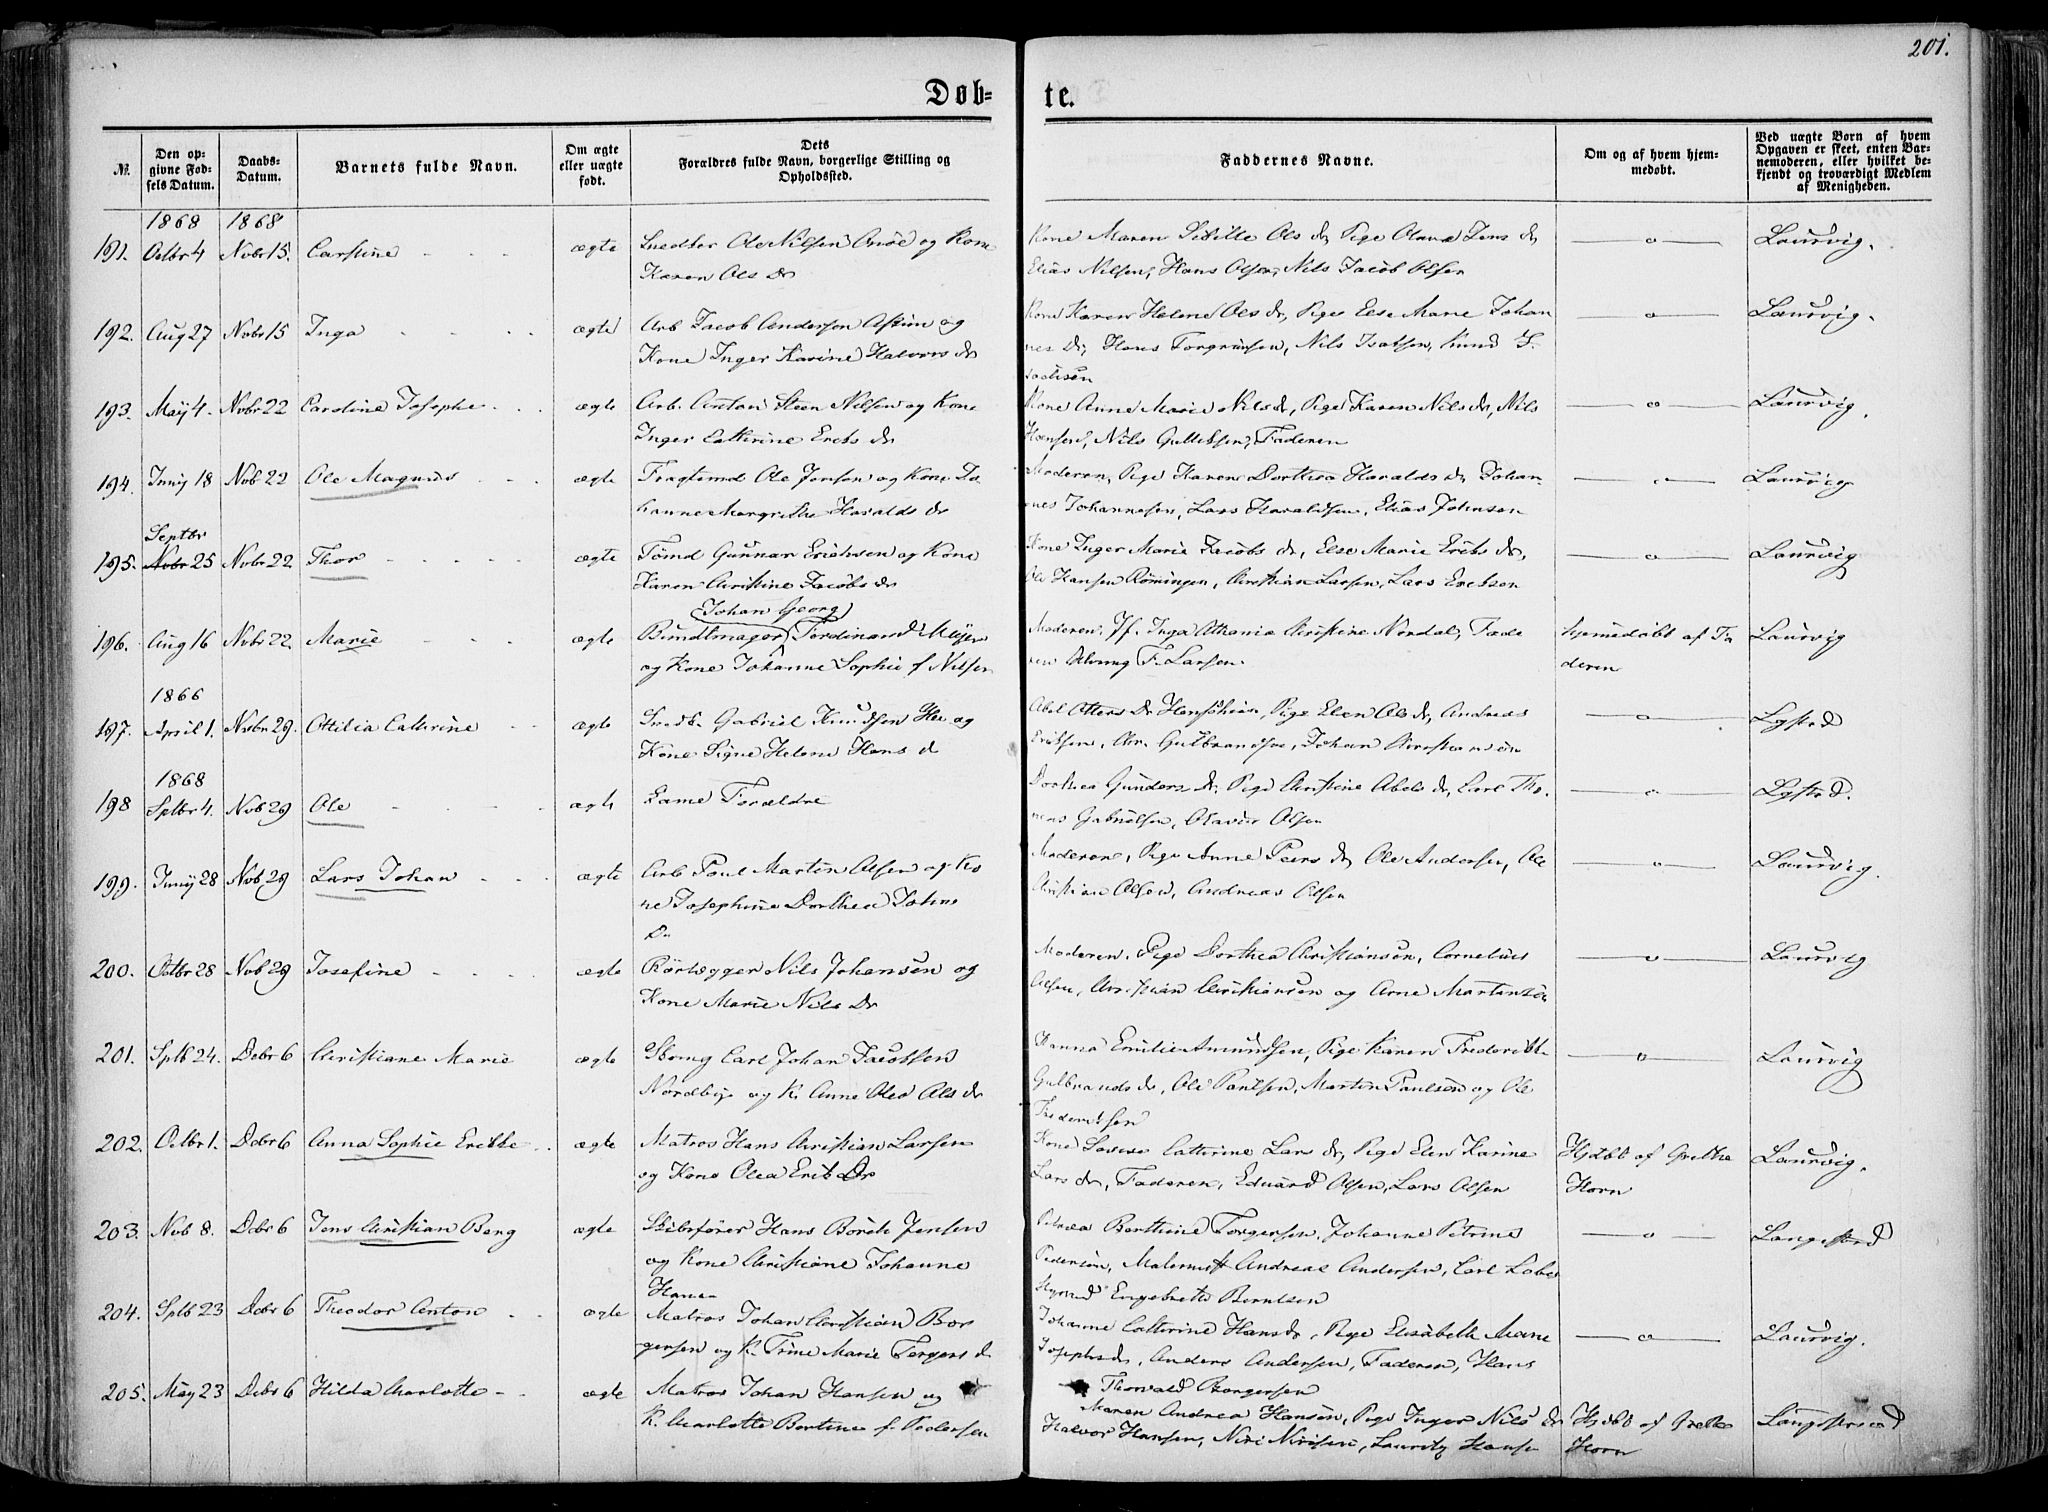 201.
Døb=
te.
№.
Den op-
givne Fød-
sels Datum.
Daabs-
Datum.
Barnets fulde Navn.
Om ægte
eller uægte
født.
Dets
Forældres fulde Navn, borgerlige Stilling og
Opholdssted.
Faddernes Navne.
Om og af hvem hjem-
medøbt.
Ved uægte Børn af hvem
Opgaven er skeet, enten Bar-
nemoderen, eller hvilket be-
kjendt og troværdigt Medlem
af Menigheden.
1868 1868
191. Octbr 4 Novbr 15. Carstine ægte Ole Nilsen og Kone
Karen Ols Dr
Kone Maren Sidille Ols dr, Pige Olava Jens dr
Elias Nilsen, Hans Olsen, Nils Jacob Olsen
Laurvig.
192. Aug 27 Novbr 15 Inga ægte Arb Jacob Andersen og
Kone Inger Karine Halvors dr
Kone Karen Helene Ols dr, Pige Else Marie Johan
nes dr, Hans Torgrimsen, Nils Isaksen, Knud
Laurvig.
193. May 4. Novbr 22 Caroline Josephe ægte Arb. Anton Steen Nilsen og Kone
Inger Cathrine Erics dr
Kone Anne Marie Nilsdr, Pige Karen Nilsdr, Nils
Hansen, Nils Gulliksen, Faderen
Laurvig.
194. Juny 18 Nvb 22 Ole Magnus ægte Fragtemd Ole Jensen og Kone Jo
hanne Margrethe Haralds dr
Moderen, Pige Karen Dorthea Haralds dr, Johan
nes Johannesen, Lars Haraldsen, Elias Johnsen
Laurvig
Septbr
195. Nvbr 25 Nvbr 22 Thor ægte Tømd Gunnar Ericksen og Kone
Karen Christine Jacobs dr
Kone Inger Marie Jacobs dr, Else Marie Ericks dr,
Ole Hansen Rømingen, Christian Larsen, Lars Ericksen
Laurvig
Johan Georg
196. Aug 16 Nvbr 22. Marie ægte Bundtmager Ferdinand Meyer
og Kone Johanne Sophie f Nilsen
Moderen, Jf. Inga Athania Christine Nordal, Fade
ren F. Larsen
Hjemedøbt af Fa
deren
Laurvig
1866
197. April 1. Nvbr 29. Ottilia Cathrine ægte Gabriel Knudsen og
Kone Signe Helene Hans d
Abel Dr, Pige Elen Ols dr, Andreas
Ericksen, Chr. Gulbrandsen, Johan Christiansen
Lysterd
1868
198 Sptbr 4. Nvb 29 Ole ægte Samme Forældre
Dorthea Gunders dr, Pige Christine Abels dr, Carl Tho
mas Gabrielsen, Olavus Olsen
Lysterd.
199. Juny 28 Nvb 29 Lars Johan ægte Arb Poul Martin Olsen og Ko
ne Josephine Dorthea Johns
Dr
Moderen, Pige Anne Peers dr, Ole Andersen, Ole
Christian Olsen, Andreas Olsen
Laurvig.
200. Octbr 28 Nvb 29 Josefine ægte Rørlægger Nils Johansen og
Kone Marie Nils Dr
Moderen, Pige Dorthea Christiansen, Cornelius
Olsen, Christian Christiansen og Arne Martinsen
Laurvig
201. Sptb 24. Debr 6 Christiane Marie ægte Carl Johan Jacobsen
Nordby og K. Anne Olea Ols dr
Hanna Emilie Amundsen, Pige Karen Frederikke
Gulbrands dr, Ole Paulsen, Martin Paulsen og Ole
Frederiksen
Laurvig
202. Octbr 1. Debr 6 Anna Sophie Erikke ægte Matros Hans Christian Larsen
og Kone Olea Erik Dr
Kone Lovise Cathrine Lars dr, Pige Elen Karine
Lars dr, Faderen, Eduard Olsen, Lars Olsen
Hjdbt af Grethe
Horn
Laurvig.
203. Nvb 8. Debr 6 Jens Christian Berg ægte Skibsfører Hans Borch Jensen
og Kone Christiane Johanne
Hanse
Petrea Berthine Torgersen, Johanne Petrine
Pedersen, Andreas Andersen, Carl
Styrmd Engebreth Berntsen
Langestrd
204. Sptb 23 Debr 6 Theodor Anton ægte Matros Johan Christian Bor
gersen og K. Trine Marie Torgers d
Johanne Cathrine Hansdr, Pige Elisabeth Marie
Josephsdr, Anders Andersen, Faderen, Hans
Thorvald Borgersen
Laurvig.
205. May 23 Debr 6 Hilda Charlotte ægte Matros Johan Hansen og
K. Charlotte Bertine f. Pedersen
Maren Andrea Hansen, Pige Inger Nils dr
Halvor Hansen, Nils Nilsen, Lauritz Hansen
Hjdbt af Grethe
Horn
Langestrand